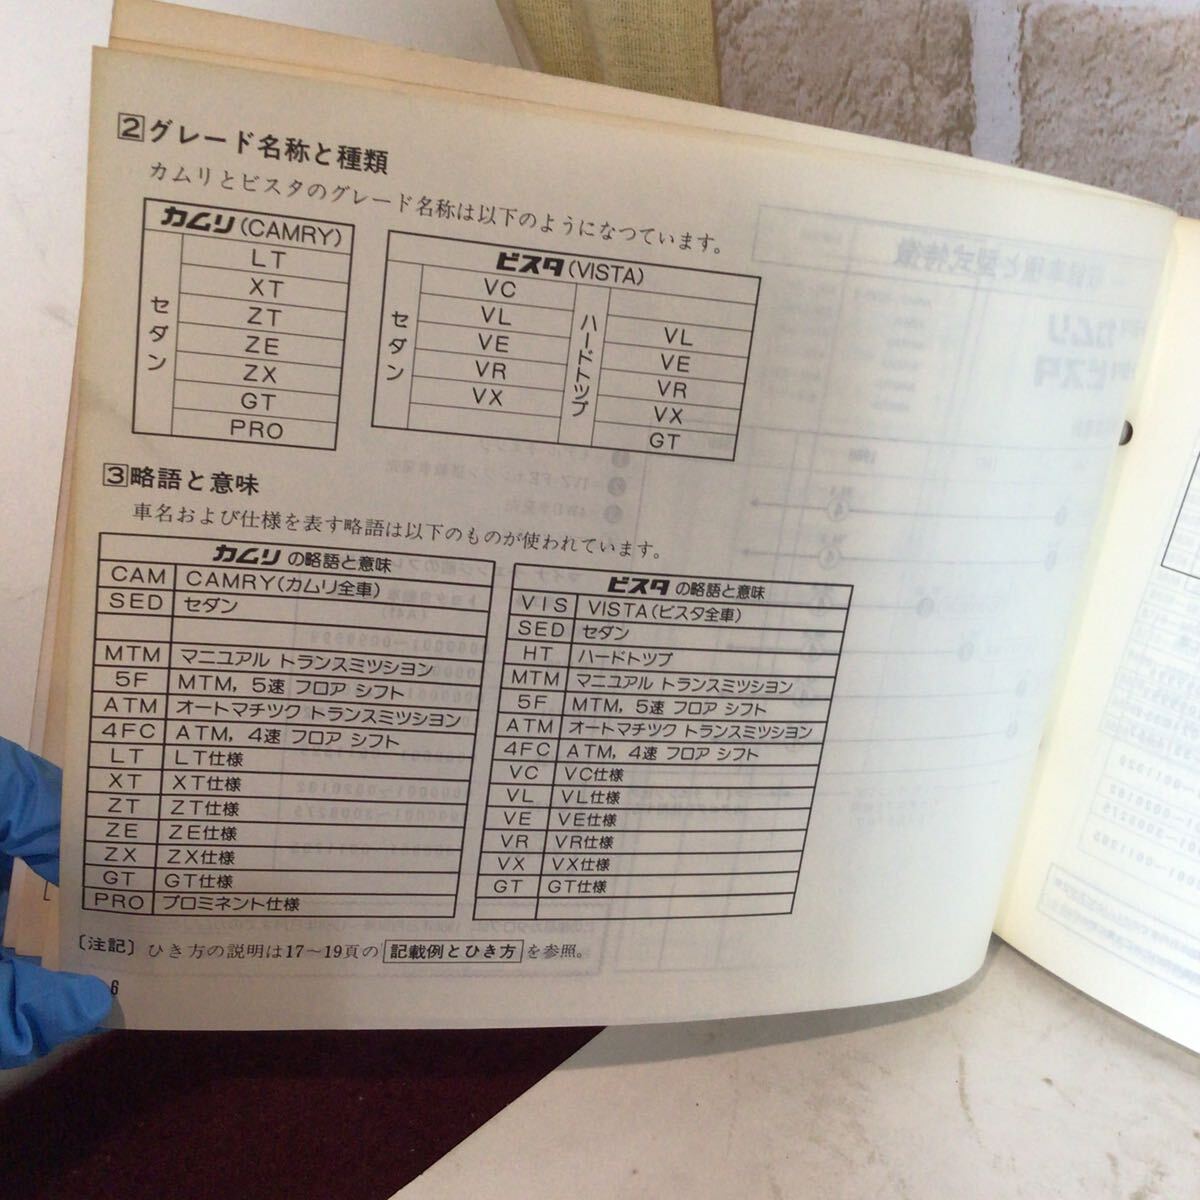 2 グレード名称と種類
カムリとビスタのグレード名称は以下のようになつています。
カムリ(CAMRY)
セダン
LT
XT
ZT
ZE
ZX
GT
PRO
ビスタ(VISTA)
セダン
VC
VL
VE
VR
VX
ハードトツプ
VL
VE
VR
VX
GT
3 略語と意味
車名および仕様を表す略語は以下のものが使われています。
カムリの略語と意味
CAM CAMRY(カムリ全車)
SED セダン
MTM マニユアル トランスミツシヨン
5F MTM, 5速 フロア シフト
ATM オートマチツク トランスミツシヨン
4FC ATM, 4速 フロア シフト
LT LT仕様
XT XT仕様
ZT ZT仕様
ZE ZE仕様
ZX ZX仕様
GT GT仕様
PRO プロミネント仕様
ビスタの略語と意味
VIS VISTA(ビスタ全車)
SED セダン
HT ハードトツプ
MTM マニユアル トランスミツシヨン
5F MTM, 5速 フロア シフト
ATM オートマチツク トランスミツシヨン
4FC ATM, 4速 フロア シフト
VC VC仕様
VL VL仕様
VE VE仕様
VR VR仕様
VX VX仕様
GT GT仕様
〔注記〕ひき方の説明は17〜19頁の 記載例とひき方 を参照。
6